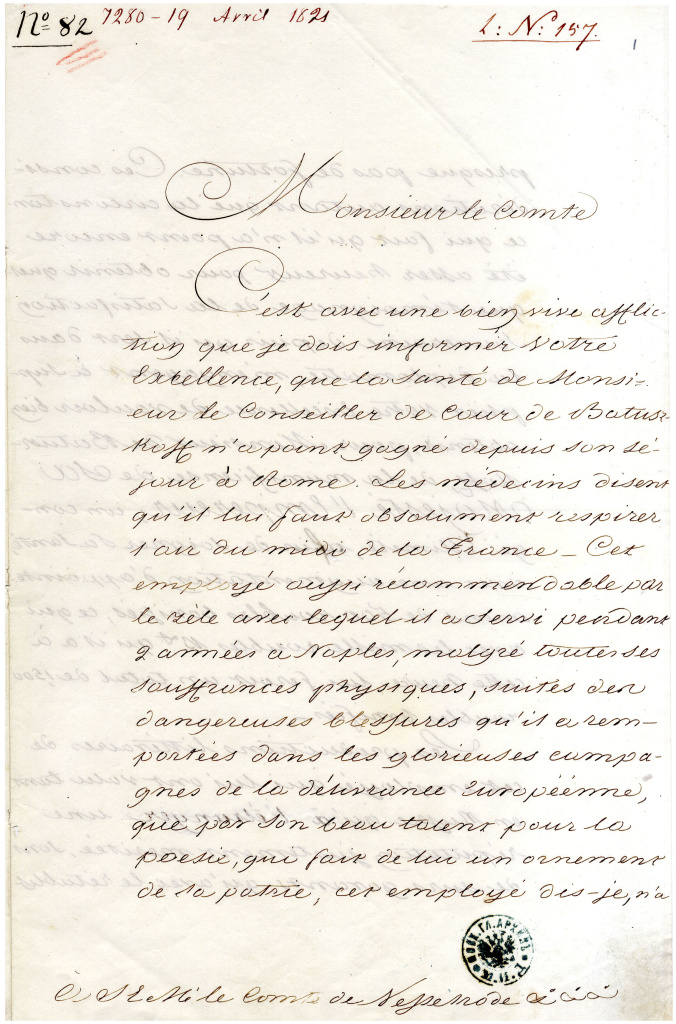 Nº 82 7280 - 19 Avril 1821 L: Nº: 157.
1
Monsieur le Comte
C'est avec une bien vive afflic-
tion que je dois informér Votre
Excellence, que la Santé de Monsi-
eur le Conseiller de Cour de Batusz
Koff n'a point gagné depuis son sé-
jour à Rome. Les médecins disent
qu'il lui faut absolument respirer
l'air du midi de la France - Cet
employé aussi récommendable par
le zéle avec lequel il a servi pendant
2 années à Naples, malgré toutes ses
souffrances physiques, suites des
dangereuses blessures qu'il a rem-
portées dans les glorieuses campa-
gnes de la délivrance Européénne,
que par son beau talent pour la
poesie, qui fait de lui un ornement
de sa patrie, cet employé dis-je, n'a
ГЛ. АРХИВЪ
à S E Mr le Comte de Nesselrode